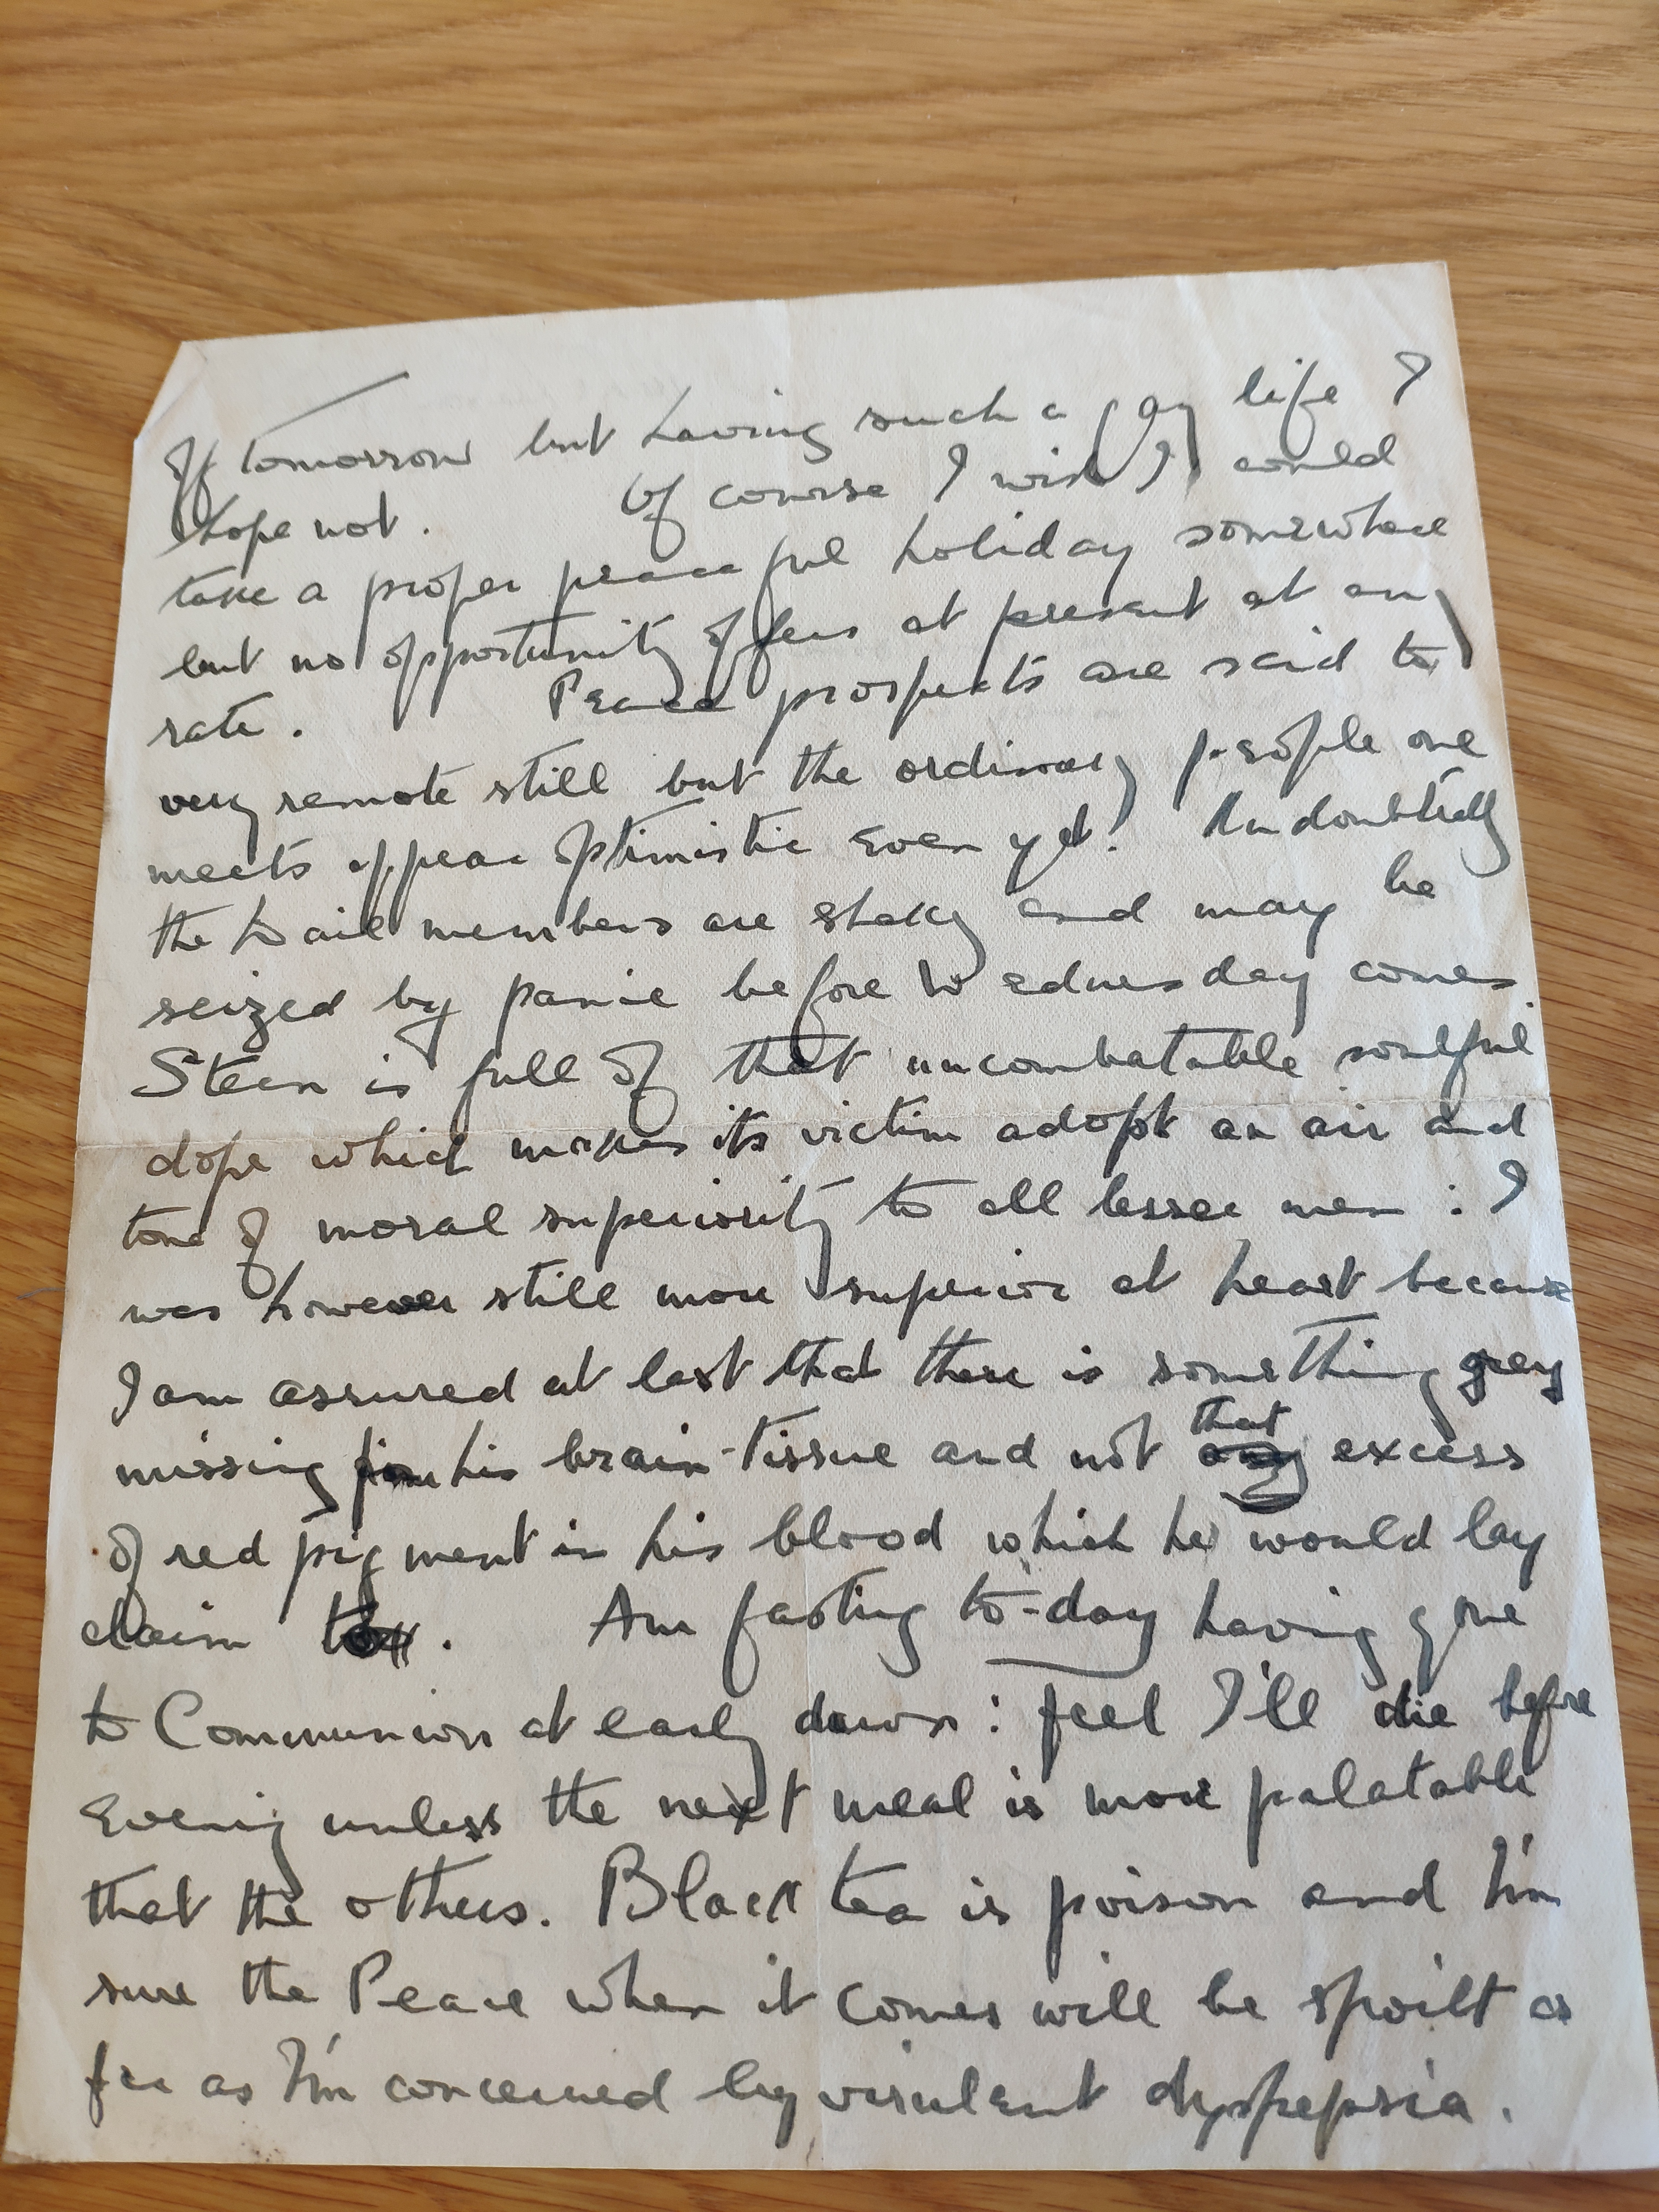 off tomorrow but having such a gay life I
hope not. Of course I wish I could
take a proper peaceful holiday somewhere
but no opportunity offers at present at any
rate. Peace prospects are said to
very remote still but the ordinary people one
meets appear optimistic even yet! Undoubtedly
the Dail members are shaky and may be
seized by panic before Wednesday comes.
Steen is full of that uncombatable soulful
dope which makes its victim adopt an air and
tone of moral superiority to all lesser men : I
was however still more superior at heart because
I am assured at last that there is something grey
missing from his brain-tissue and not that excess
of red pigment in his blood which he would lay
claim to. Am fasting to-day having gone
to Communion at early dawn: feel I'll die before
Evening unless the next meal is more palatable
that the others. Black tea is poison and I'm
sure the Peace when it comes will be spoilt as
far as I'm concerned by virulent dyspepsia.